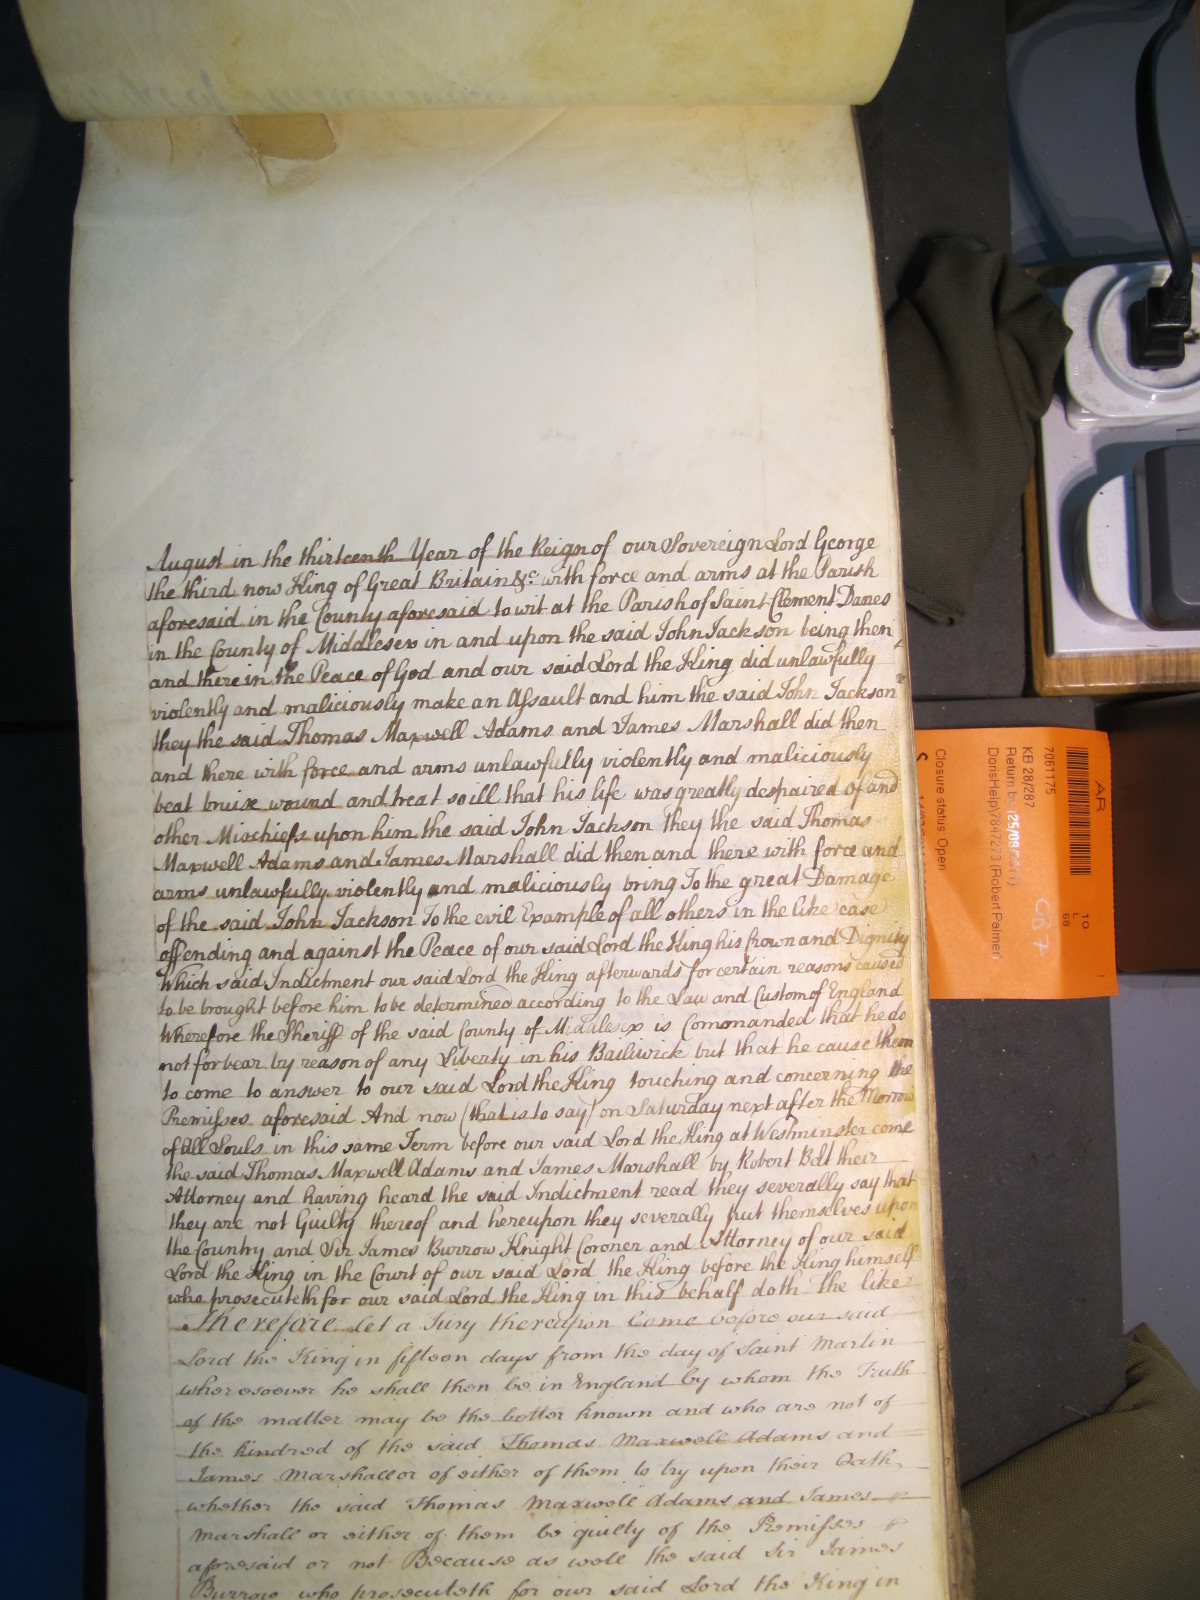 August in the thirteenth Year of the Reign of our Sovereign Lord George
the third now King of Great Britain &c with force and arms at the Parish
aforesaid in the County aforesaid to wit at the Parish of Saint Clement Danes
in the County of Middlesex in and upon the said John Jackson being then
and there in the Peace of God and our said Lord the King did unlawfully
violently and maliciously make an Assault and him the said John Jackson
they the said Thomas Maxwell Adams and James Marshall did then
and there with force and arms unlawfully violently and maliciously
beat bruise wound and treat so ill that his life was greatly despaired of and
other Mischiefs upon him the said John Jackson they the said Thomas
Maxwell Adams and James Marshall did then and there with force and
arms unlawfully violently and maliciously bring To the great Damage
of the said John Jackson To the evil Example of all others in the like case
offending and against the Peace of our said Lord the King his Crown and Dignity
Which said Indictment our said Lord the King afterwards for certain reasons caused
to be brought before him to be determined according to the Law and Custom of England
Wherefore the Sheriff of the said County of Middlesex is Commanded that he do
not forbear by reason of any Liberty in his Bailiwick but that he cause them
to come to answer to our said Lord the King touching and concerning the
Premisses aforesaid And now (that is to say) on Saturday next after the Morrow
of All Souls in this same Term before our said Lord the King at Westminster come
the said Thomas Maxwell Adams and James Marshall by Robert Bolt their
Attorney and having heard the said Indictment read they severally say that
they are not Guilty thereof and hereupon they severally put themselves upon
the Country and Sir James Burrow Knight Coroner and Attorney of our said
Lord the King in the Court of our said Lord the King before the King himself
who prosecuteth for our said Lord the King in this behalf doth the like
Therefore let a Jury thereupon Come before our said
Lord the King in fifteen days from the day of Saint Martin
wheresoever he shall then be in England by whom the Truth
of the matter may be the better known and who are not of
the kindred of the said Thomas Maxwell Adams and
James Marshall or of either of them to try upon their Oath
whether the said Thomas Maxwell Adams and James
Marshall or either of them be guilty of the Premisses
aforesaid or not Because as well the said Sir James
Burrow who prosecuteth for our said Lord the King in
AR
10
L
68
7061175
KB 28/287
Return by
DorisHelp\7847273 (Robert Palmer)
Closure status: Open